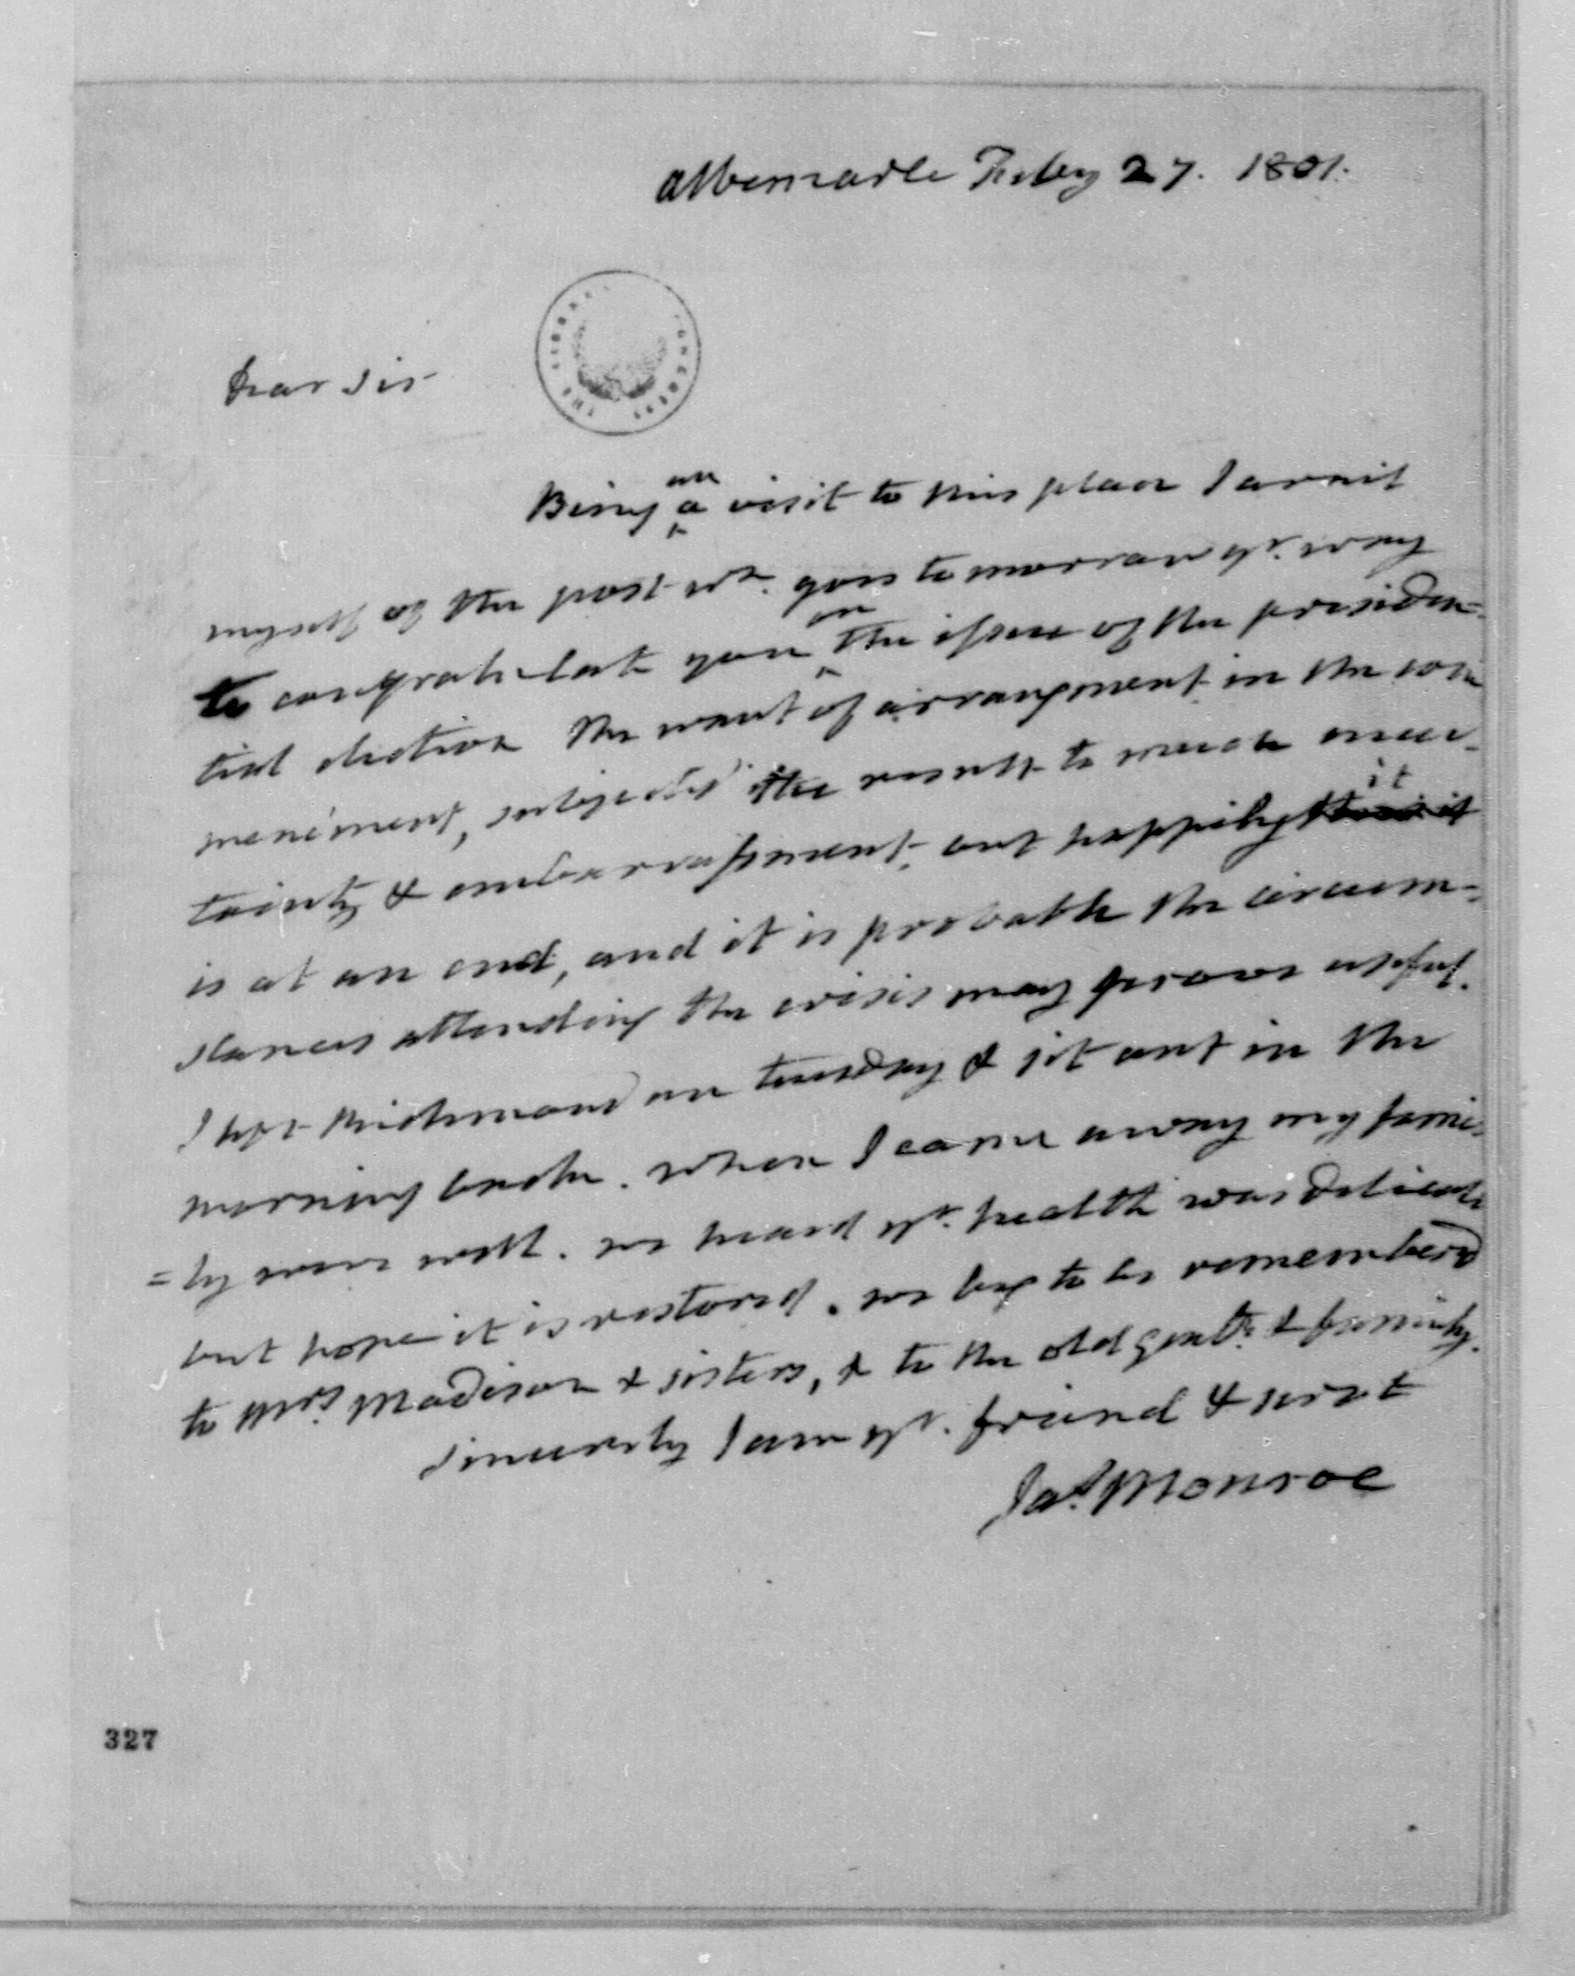 Albemarle Feby 27. 1801.
Dear Sir
Being on a visit to this place I avail
myself of the post wh. goes tomorrow yr. way
to congratulate you on the issue of the presiden=
tial election. The want of arrangement in the com
mencement, subjected the result to much uncer-
tainty & embarrassment, but happily it
is at an end, and it is probable the circum=
stances attending the crisis may prove useful.
I left Richmond on tuesday & set out in the
morning back. when I came away my fami=
=ly were well. we heard yr. health was delicate
but hope it is restored. we beg to be remembered
to Mrs. Madison & sisters, & to the old gentn. & family.
sincerely I am yr. friend & servt
Jas. Monroe
327